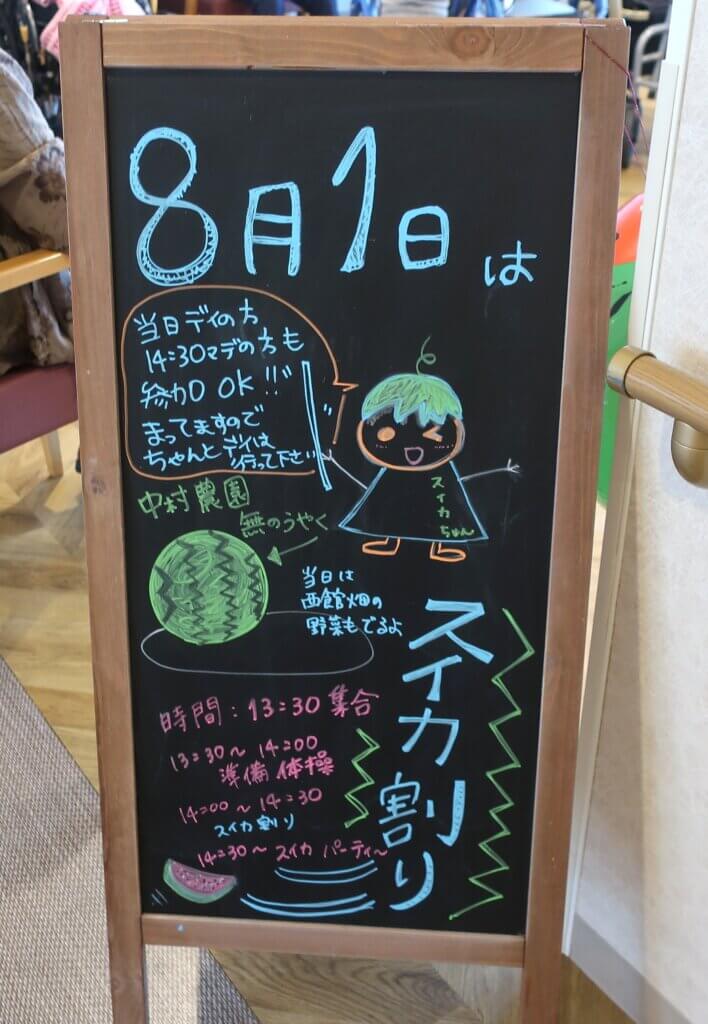 8月1日は
当日デイの方
14:30マデの方も
参加 OK!!
まってますので
ちゃんとデイは
行って下さい
スイカ
ちゃん
中村農園
無のうやく
当日は
西館畑の
野菜もでるよ
スイカ割り
時間:13:30 集合
13:30～14:00
準備体操
14:00～14:30
スイカ割り
14:30～スイカパーティ～